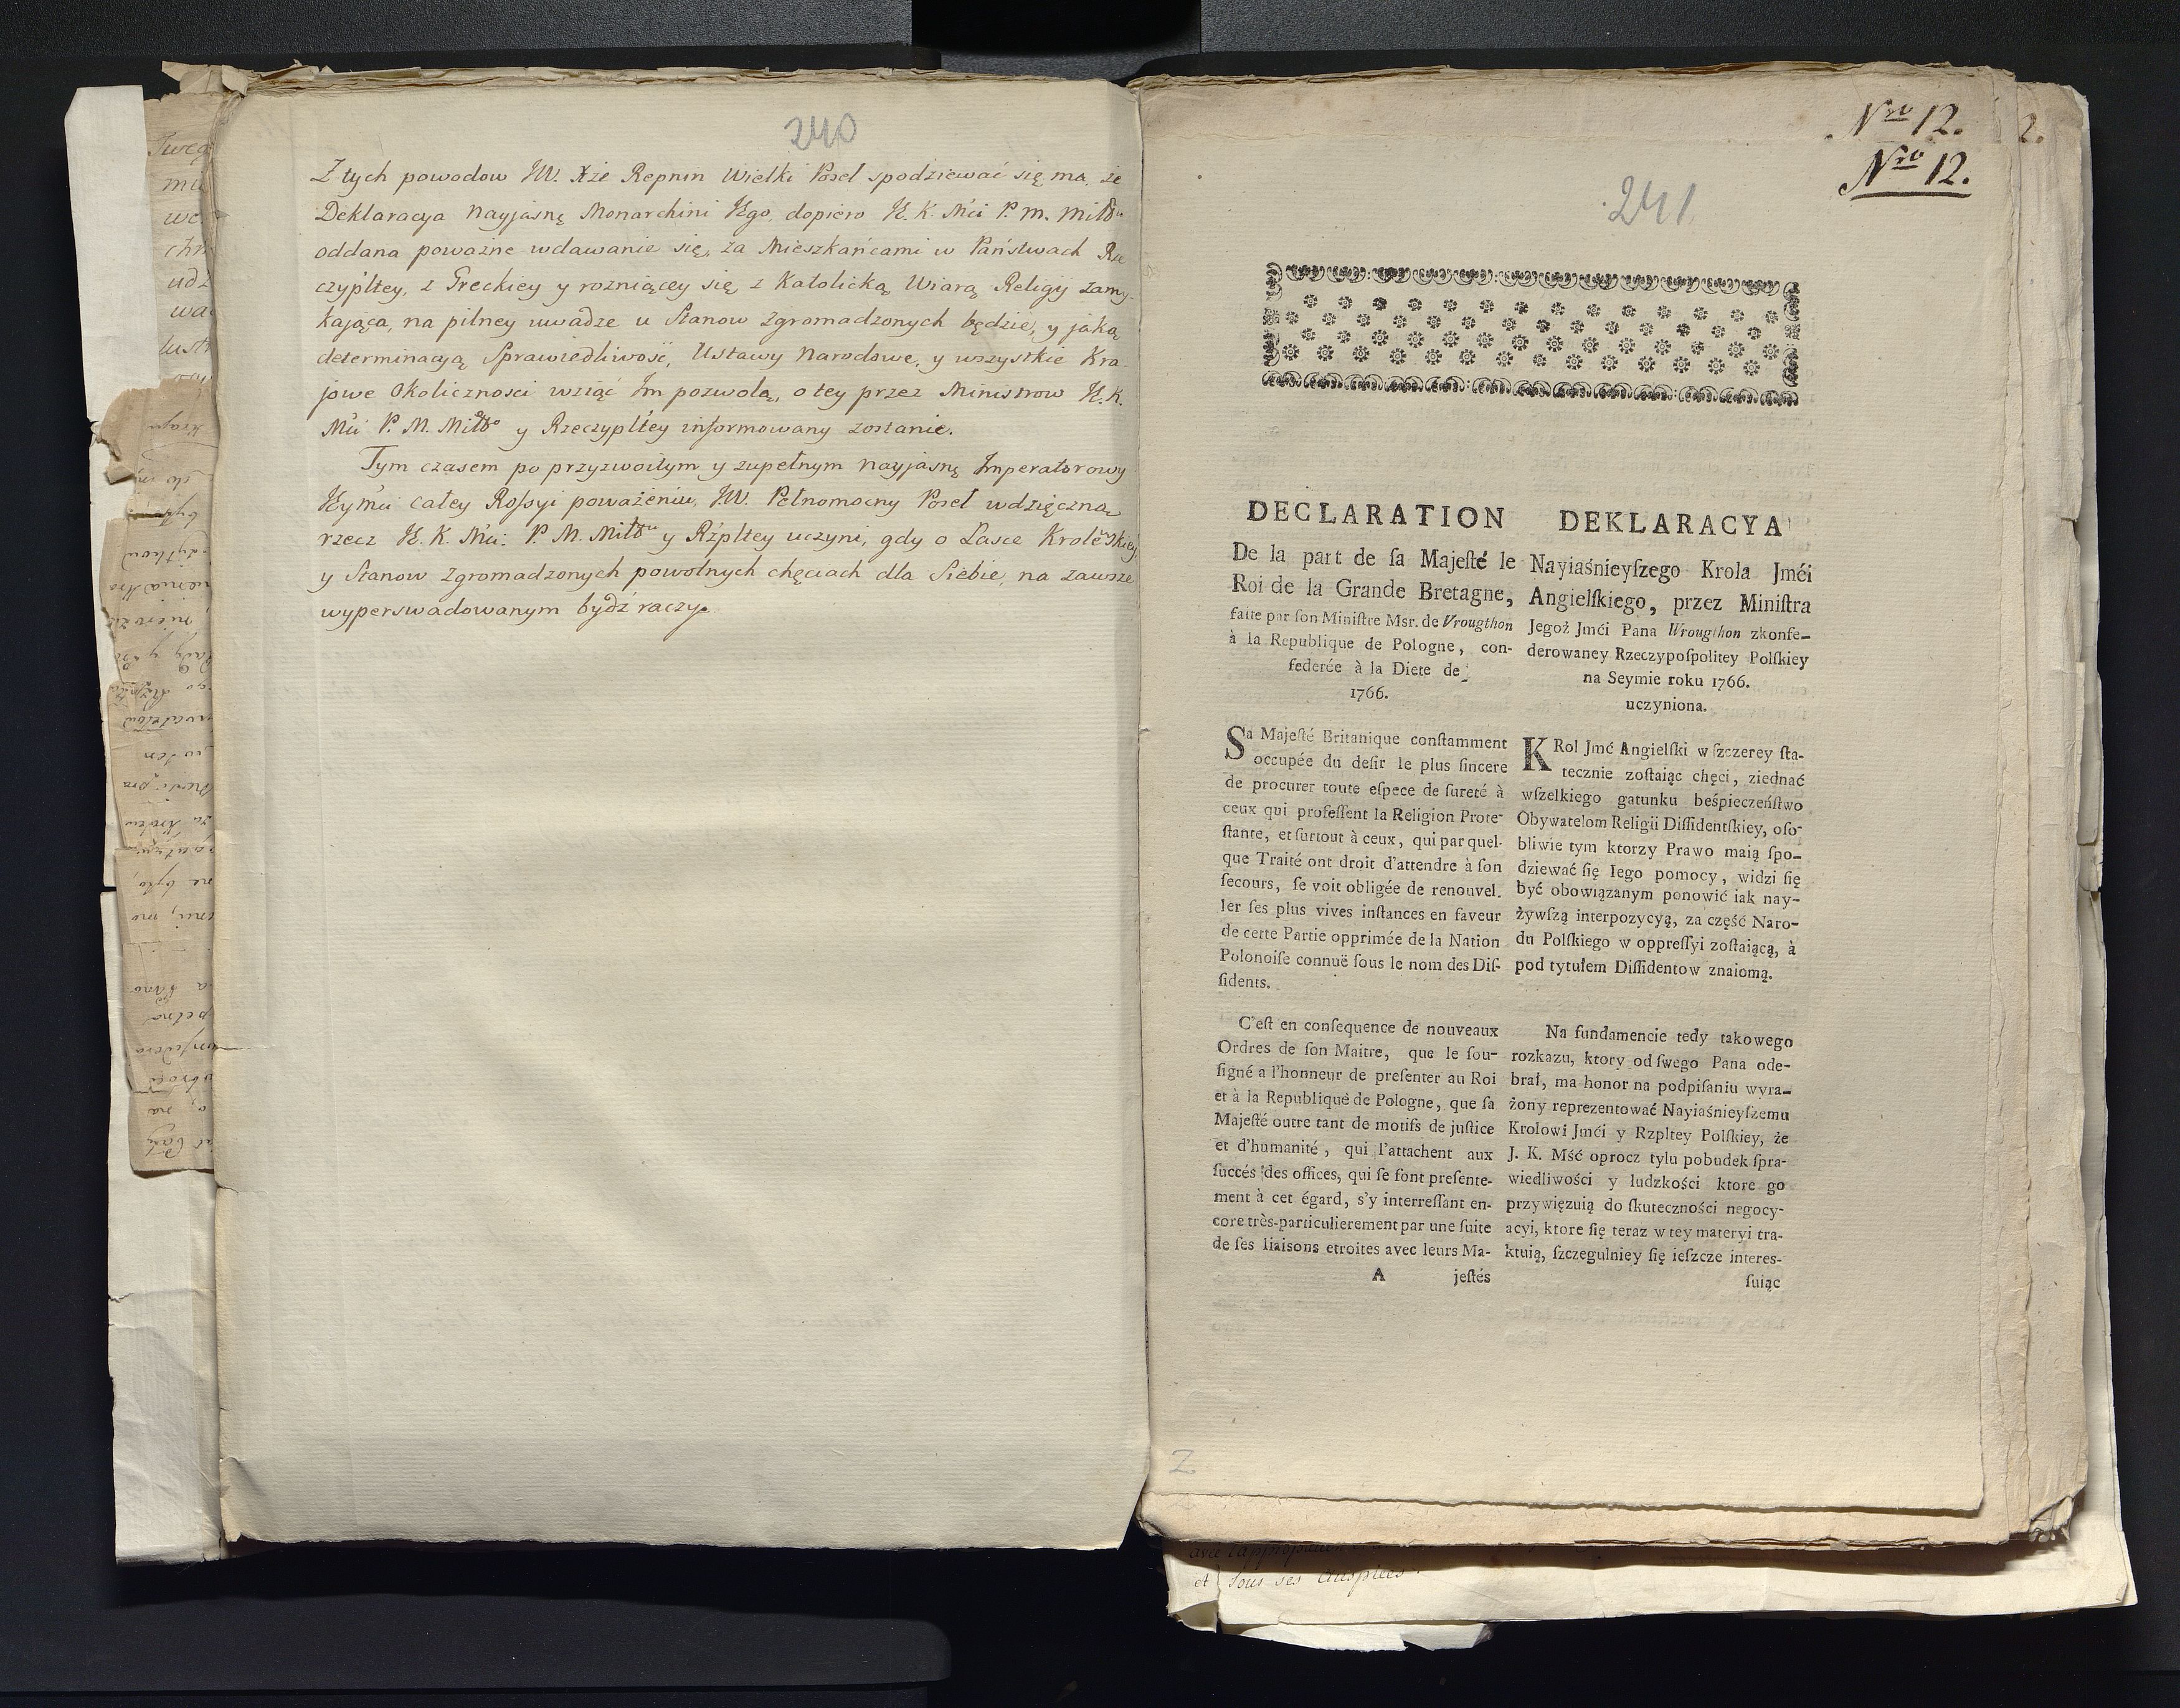 240
Z tych powodow JW. Xże Repnin Wielki Poseł spodziewać się ma, że
Deklaracya Nayjasnę Monarchini JEgo, dopiero JE. K. Mći P. M. Miłou
oddana poważne wdawanie się, za Mieszkańcami w Państwach Rze
czypltey, z Greckiey y rozniącey się z Katolicką Wiarą Religij zamy-
kająca, na pilney uwadze u Stanow zgromadzonych będzie, y jaką
determinacyą Sprawiedliwość, Ustawy Narodowe, y wszystkie Kra-
jowe Okolicznosci wziąć Jm pozwolą, o tey przez Ministrow JE. K.
Mći P. M. Miłº y Rzeczypltey informowany zostanie.
Tym czasem po przyzwoitym y zupełnym Nayjasnę Imperatorowy
JEymći całey Rossyi poważeniu, JW. Pełnomocny Poseł wdzięczną
rzecz JE. K. Mći: P. M. Miłu y Rzpltey uczyni, gdy o Łasce Krolewskiey
y Stanow Zgromadzonych powolnych chęciach dla Siebie, na zawsze
wyperswadowanym bydź raczy.
Nro 12.
2.
Nro 12.
241
DECLARATION
De la part de ſa Majeſté le
Roi de la Grande Bretagne,
faite par ſon Miniſtre Msr. de Vrougthon
à la Republique de Pologne, con-
federée à la Diete de
1766.
Sa Majeſté Britanique conſtamment
occupée du deſir le plus ſincere
de procurer toute eſpece de ſureté à
ceux qui profeſſent la Religion Prote-
ſtante, et ſurtout à ceux, qui par quel-
que Traité ont droit d'attendre à ſon
ſecours, ſe voit obligée de renouvel-
ler ſes plus vives inſtances en faveur
de cette Partie opprimée de la Nation
Polonoiſe connuë ſous le nom des Diſ-
ſidents.
C'eſt en conſequence de nouveaux
Ordres de ſon Maitre, que le ſou-
ſigné a l'honneur de preſenter au Roi
et à la Republique de Pologne, que ſa
Majeſté outre tant de motifs de juſtice
et d'humanité, qui l'attachent aux
ſuccés des offices, qui ſe font preſente-
ment à cet égard, s'y interreſſant en-
core très-particulierement par une ſuite
de ſes liaisons etroites avec leurs Ma-
A jeſtés
DEKLARACYA
Nayiaśnieyſzego Krola Jmći
Angielſkiego, przez Miniſtra
Jegoż Jmći Pana Wrougthon zkonfe-
derowaney Rzeczypoſpolitey Polſkiey
na Seymie roku 1766.
uczyniona.
KRol Jmć Angielſki w ſzczerey ſta-
tecznie zoſtaiąc chęci, ziednać
wſzelkiego gatunku beśpieczeńſtwo
Obywatelom Religii Diſſidentſkiey, oſo-
bliwie tym ktorzy Prawo maią ſpo-
dziewać się Iego pomocy, widzi się
być obowiązanym ponowić iak nay-
żywſzą interpozycyą, za część Naro-
du Polſkiego w oppreſſyi zoſtaiącą, à
pod tytułem Diſſidentow znaiomą.
Na fundamencie tedy takowego
rozkazu, ktory od ſwego Pana ode-
brał, ma honor na podpiſaniu wyra-
żony reprezentować Nayiaśnieyſzemu
Krolowi Jmći y Rzpltey Polſkiey, że
J. K. Mść oprocz tylu pobudek ſpra-
wiedliwości y ludzkości ktore go
przywięzuią do ſkuteczności negocy-
acyi, ktore się teraz w tey materyi tra-
ktuią, ſzczegulniey ſię ieſzcze interes-
ſuiąc
et sous ses auspices.